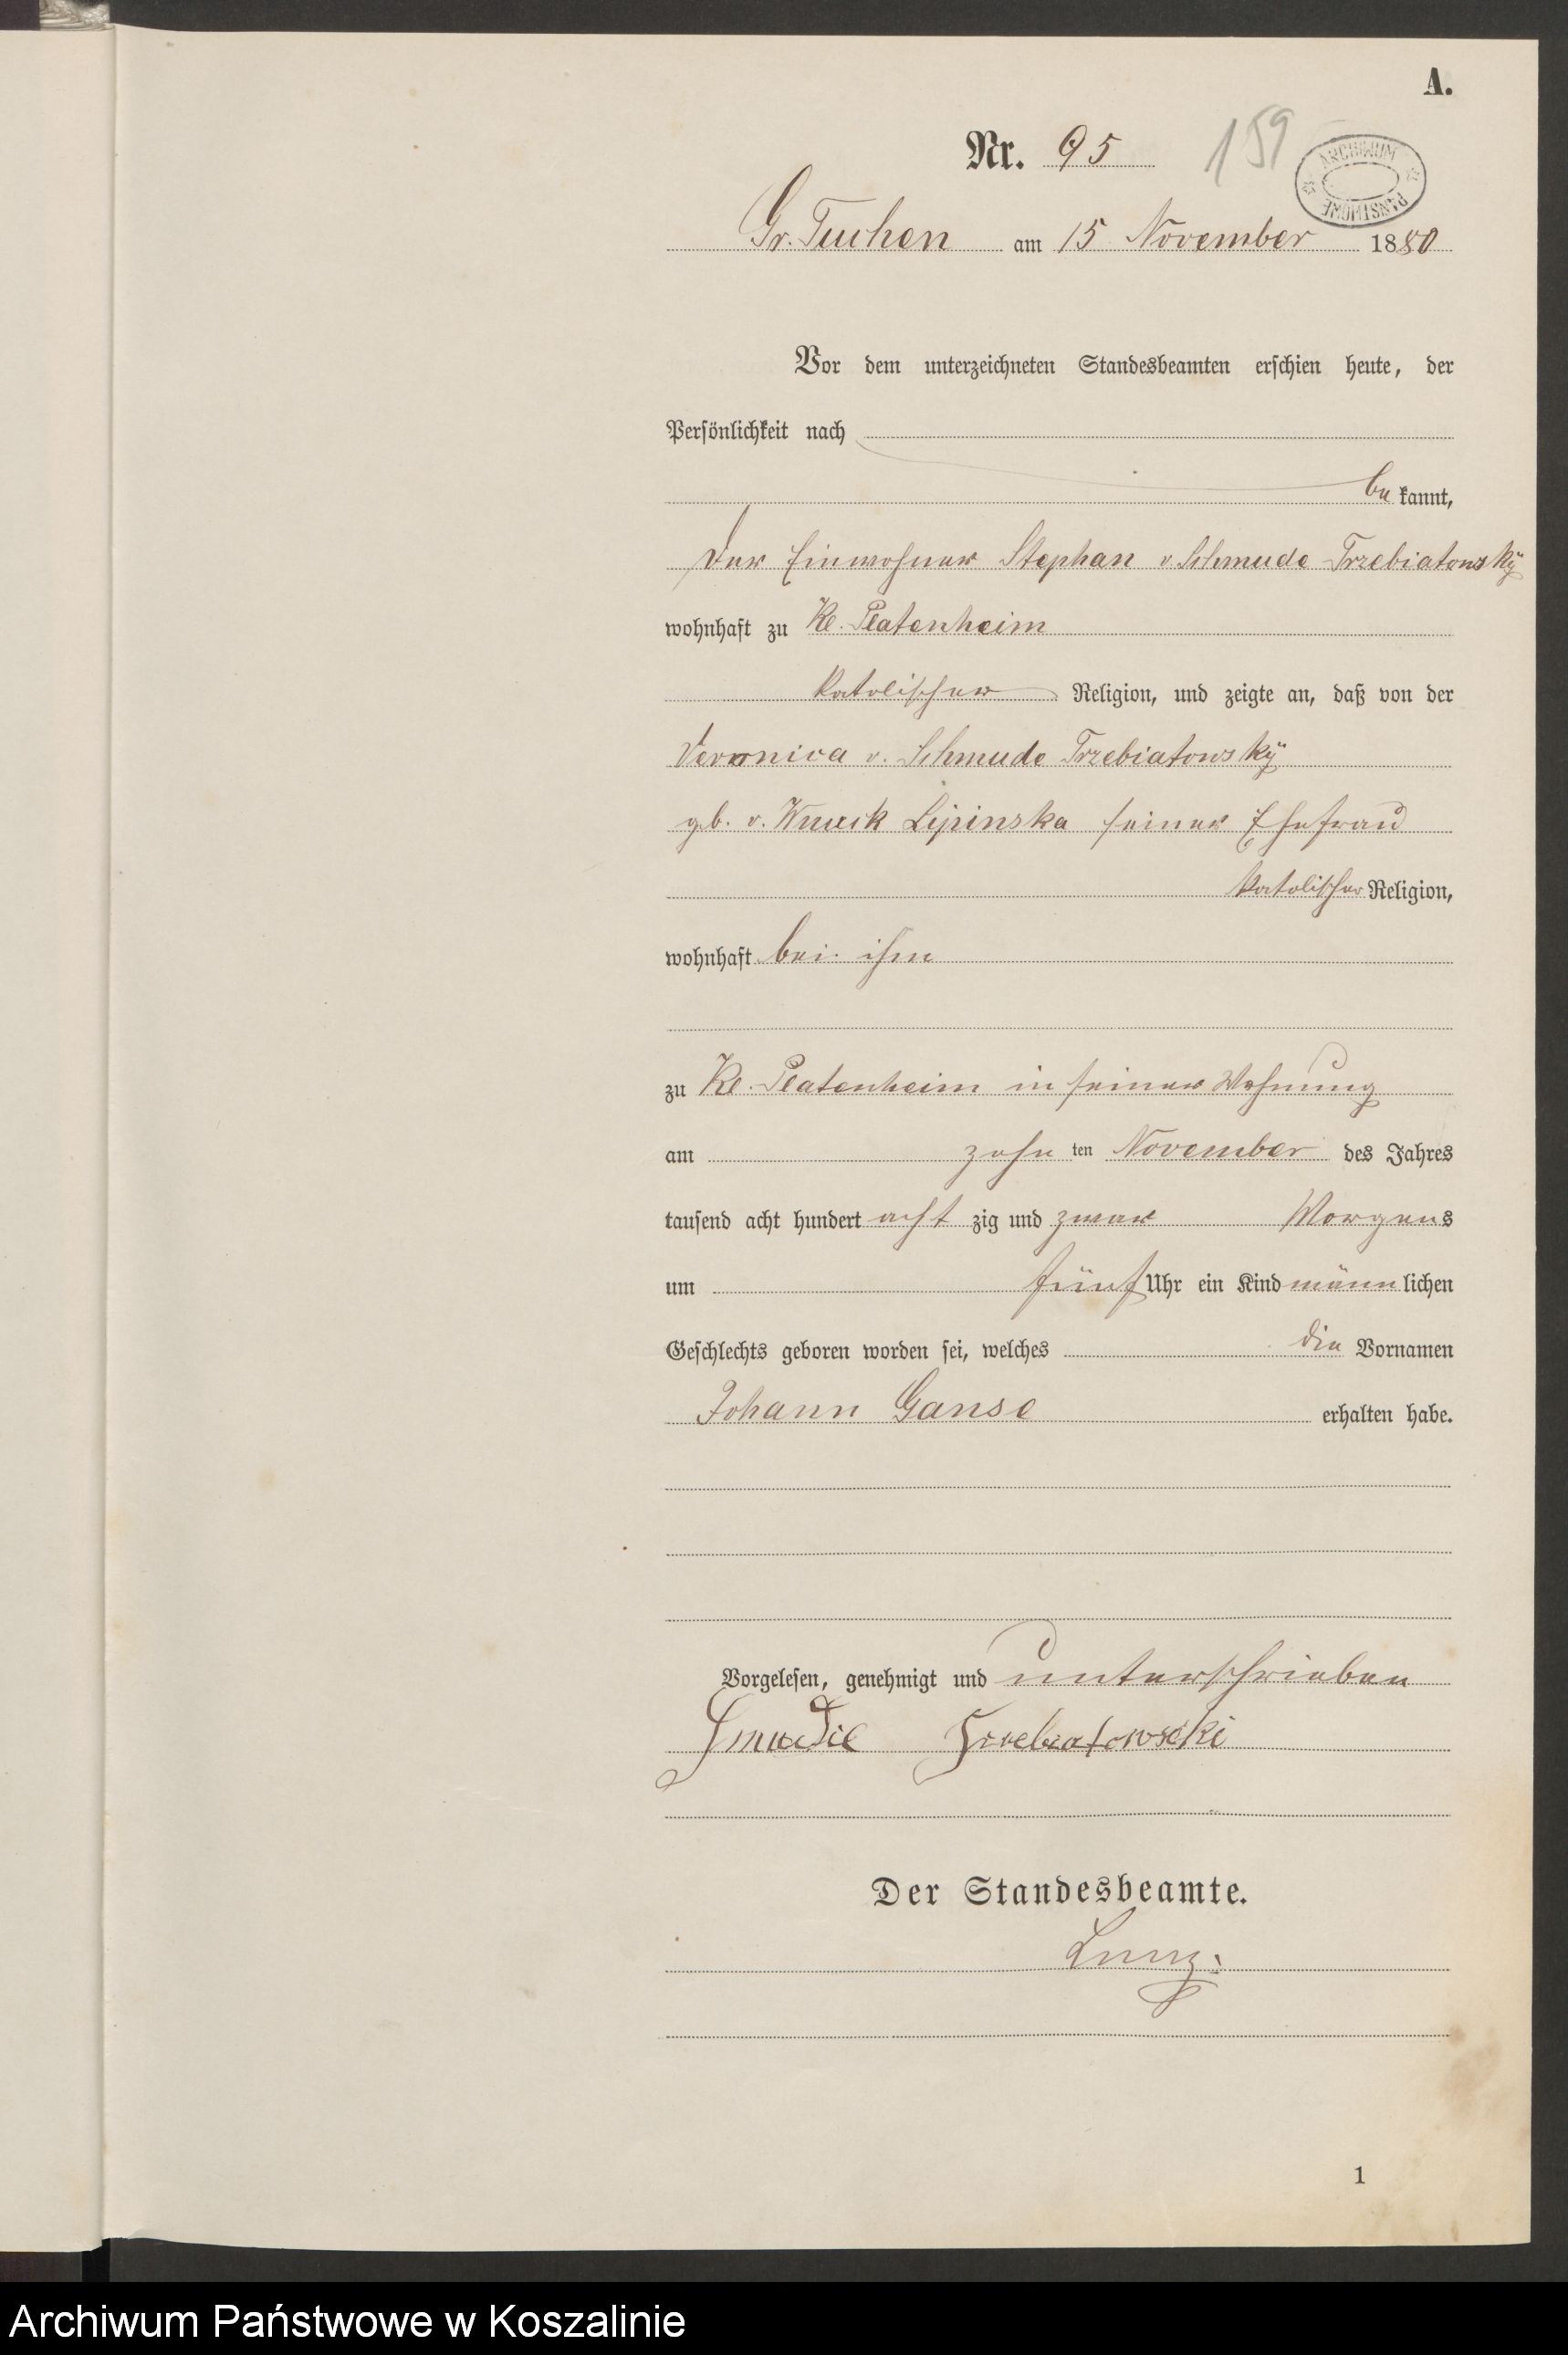 A.
Nr. 95 159
ARCHIWUM PAŃSTWOWE
Gr. Tuchen am 15 November 1880
Vor dem unterzeichneten Standesbeamten erschien heute, der
Persönlichkeit nach
be kannt,
der Einwohner Stephan v. Schmude Trzebiatowsky
wohnhaft zu Kl. Platenheim
katolischer Religion, und zeigte an, daß von der
Veronica v. Schmude Trzebiatowsky
geb. v. Lipinska seiner Ehefrau
katolischer Religion,
wohnhaft bei ihm
zu Kl. Platenheim in seiner Wohnung
am zehn ten November des Jahres
tausend acht hundert acht zig und zwar Morgens
um fünf Uhr ein Kind männ lichen
Geschlechts geboren worden sei, welches die Vornamen
Johann erhalten habe.
Vorgelesen, genehmigt und unterschrieben
Der Standesbeamte.
1
Archiwum Państwowe w Koszalinie